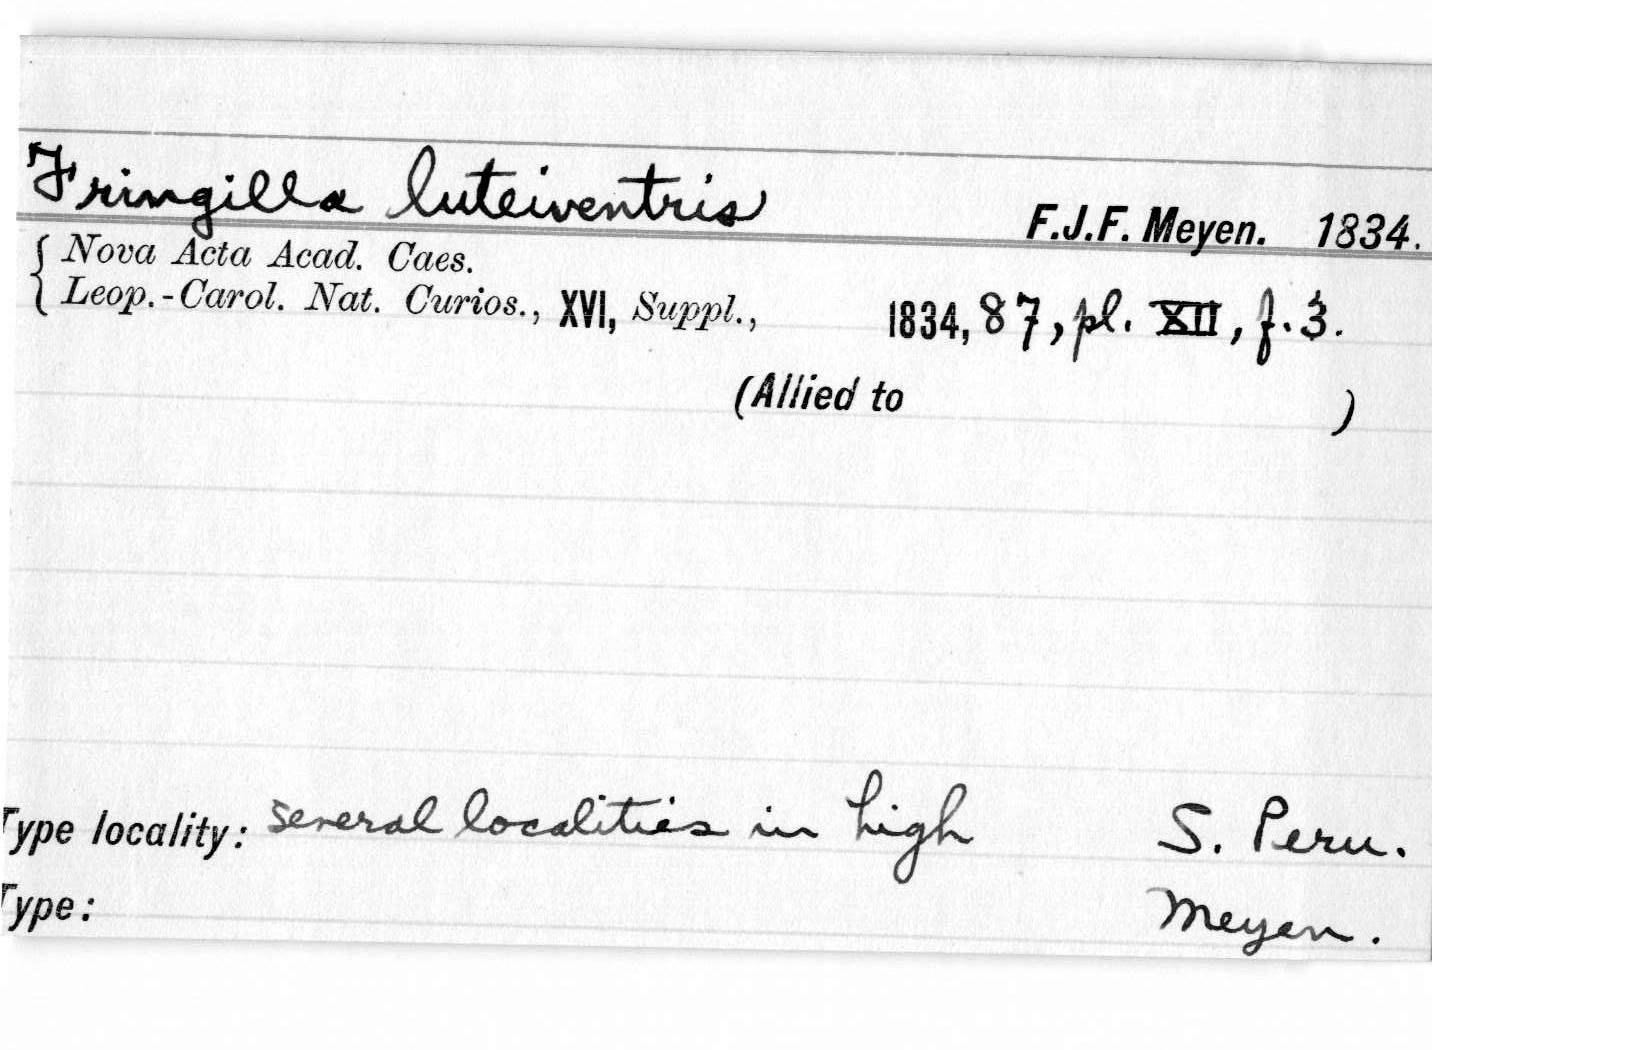 Fringilla luteiventris F.J.F. Meyen. 1834.
Nova Acta Acad. Caes.
Leop.-Carol. Nat. Curios., XVI, Suppl., 1834, 87, pl. XII, f. 3.
(Allied to )
Type locality: several localities in high S. Peru.
Type: Meyen.